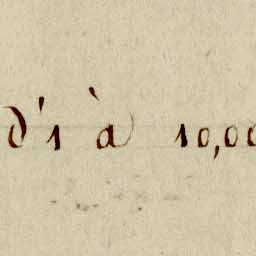 d'1 à 10,00